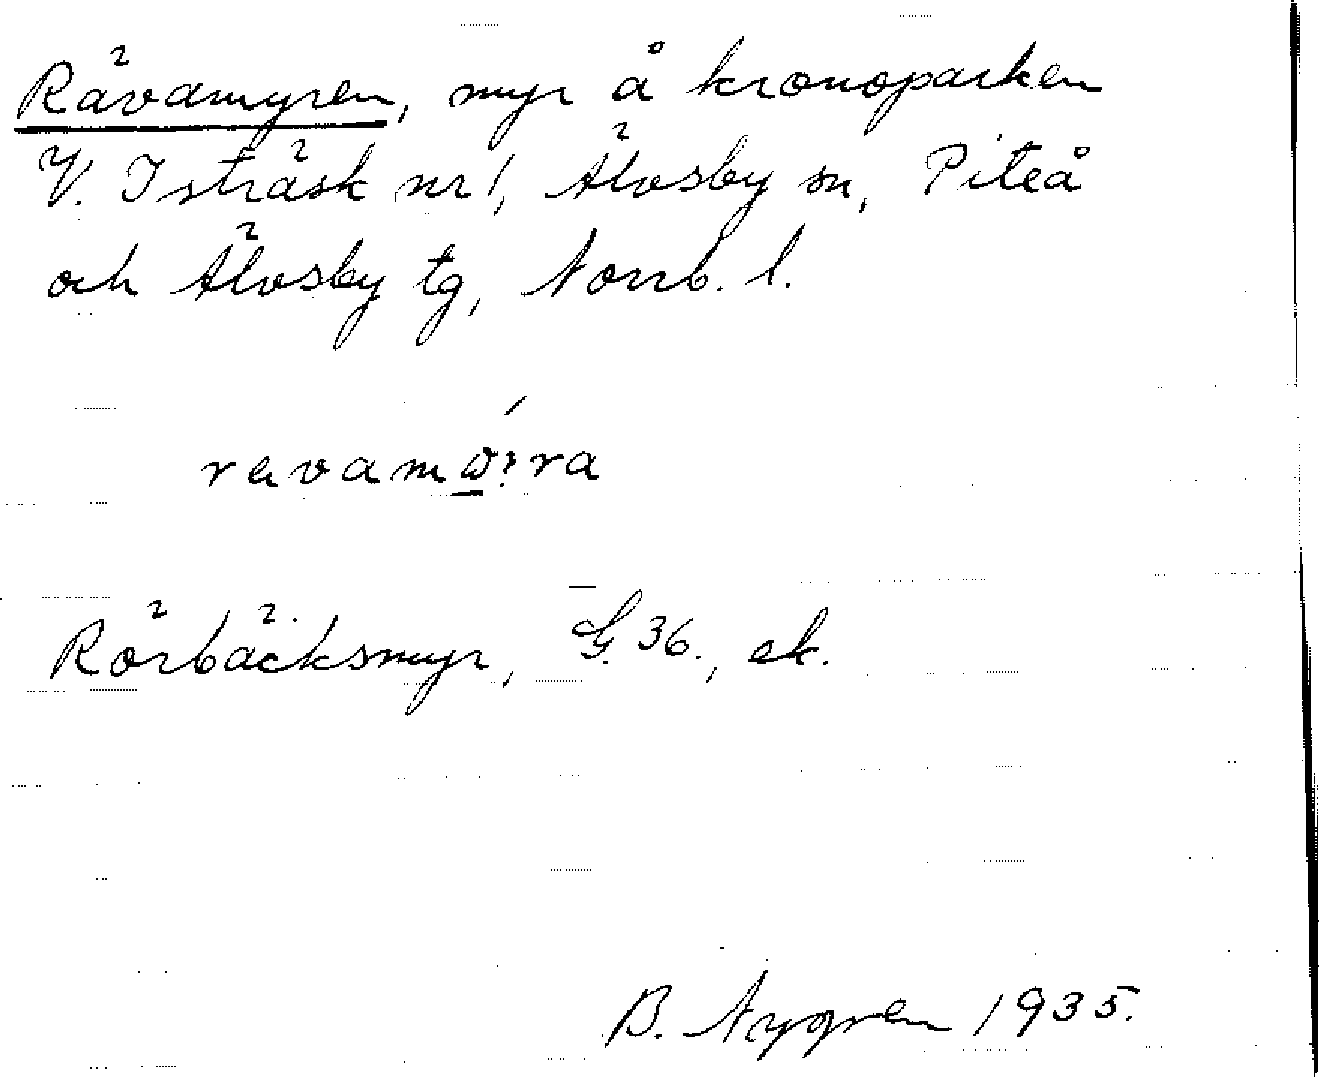 Rävamyren, myr å kronoparken
V. Isträsk nr 1, Älvsby sn, Piteå
och Älvsby tg, Norrb. l.
Rörbäcksmyr, G. 36., ek.
B. Nygren 1935.